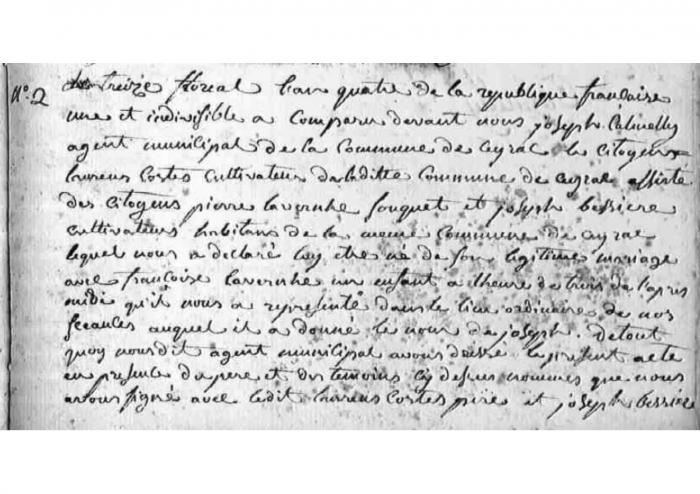 N.o 2
treize floreal l'an quatre de la republique francaise
une et indivisible a comparu devant nous joseph Calmelly
agent municipal de la commune de ceyrac le citoyen
Laurens Costes cultivateur de laditte commune de ceyrac assisté
des citoyens pierre Lavernhe fouquet et joseph bessiere
cultivateurs habitans de la meme commune de ceyrac
lequel nous a declaré luy etre né de son legitime mariage
avec francoise Lavernhe un enfant a lheure de trois de l'apres
midi qu'il nous a representé dans le lieu ordinaire de nos
seances auquel il a donne le nom de joseph. De tout
quoy nousdit agent municipal avons dressé le present acte
en presence du pere et des temoins cy dessus nommes que nous
avons signé avec ledit Laurens Costes pere et joseph bessiere